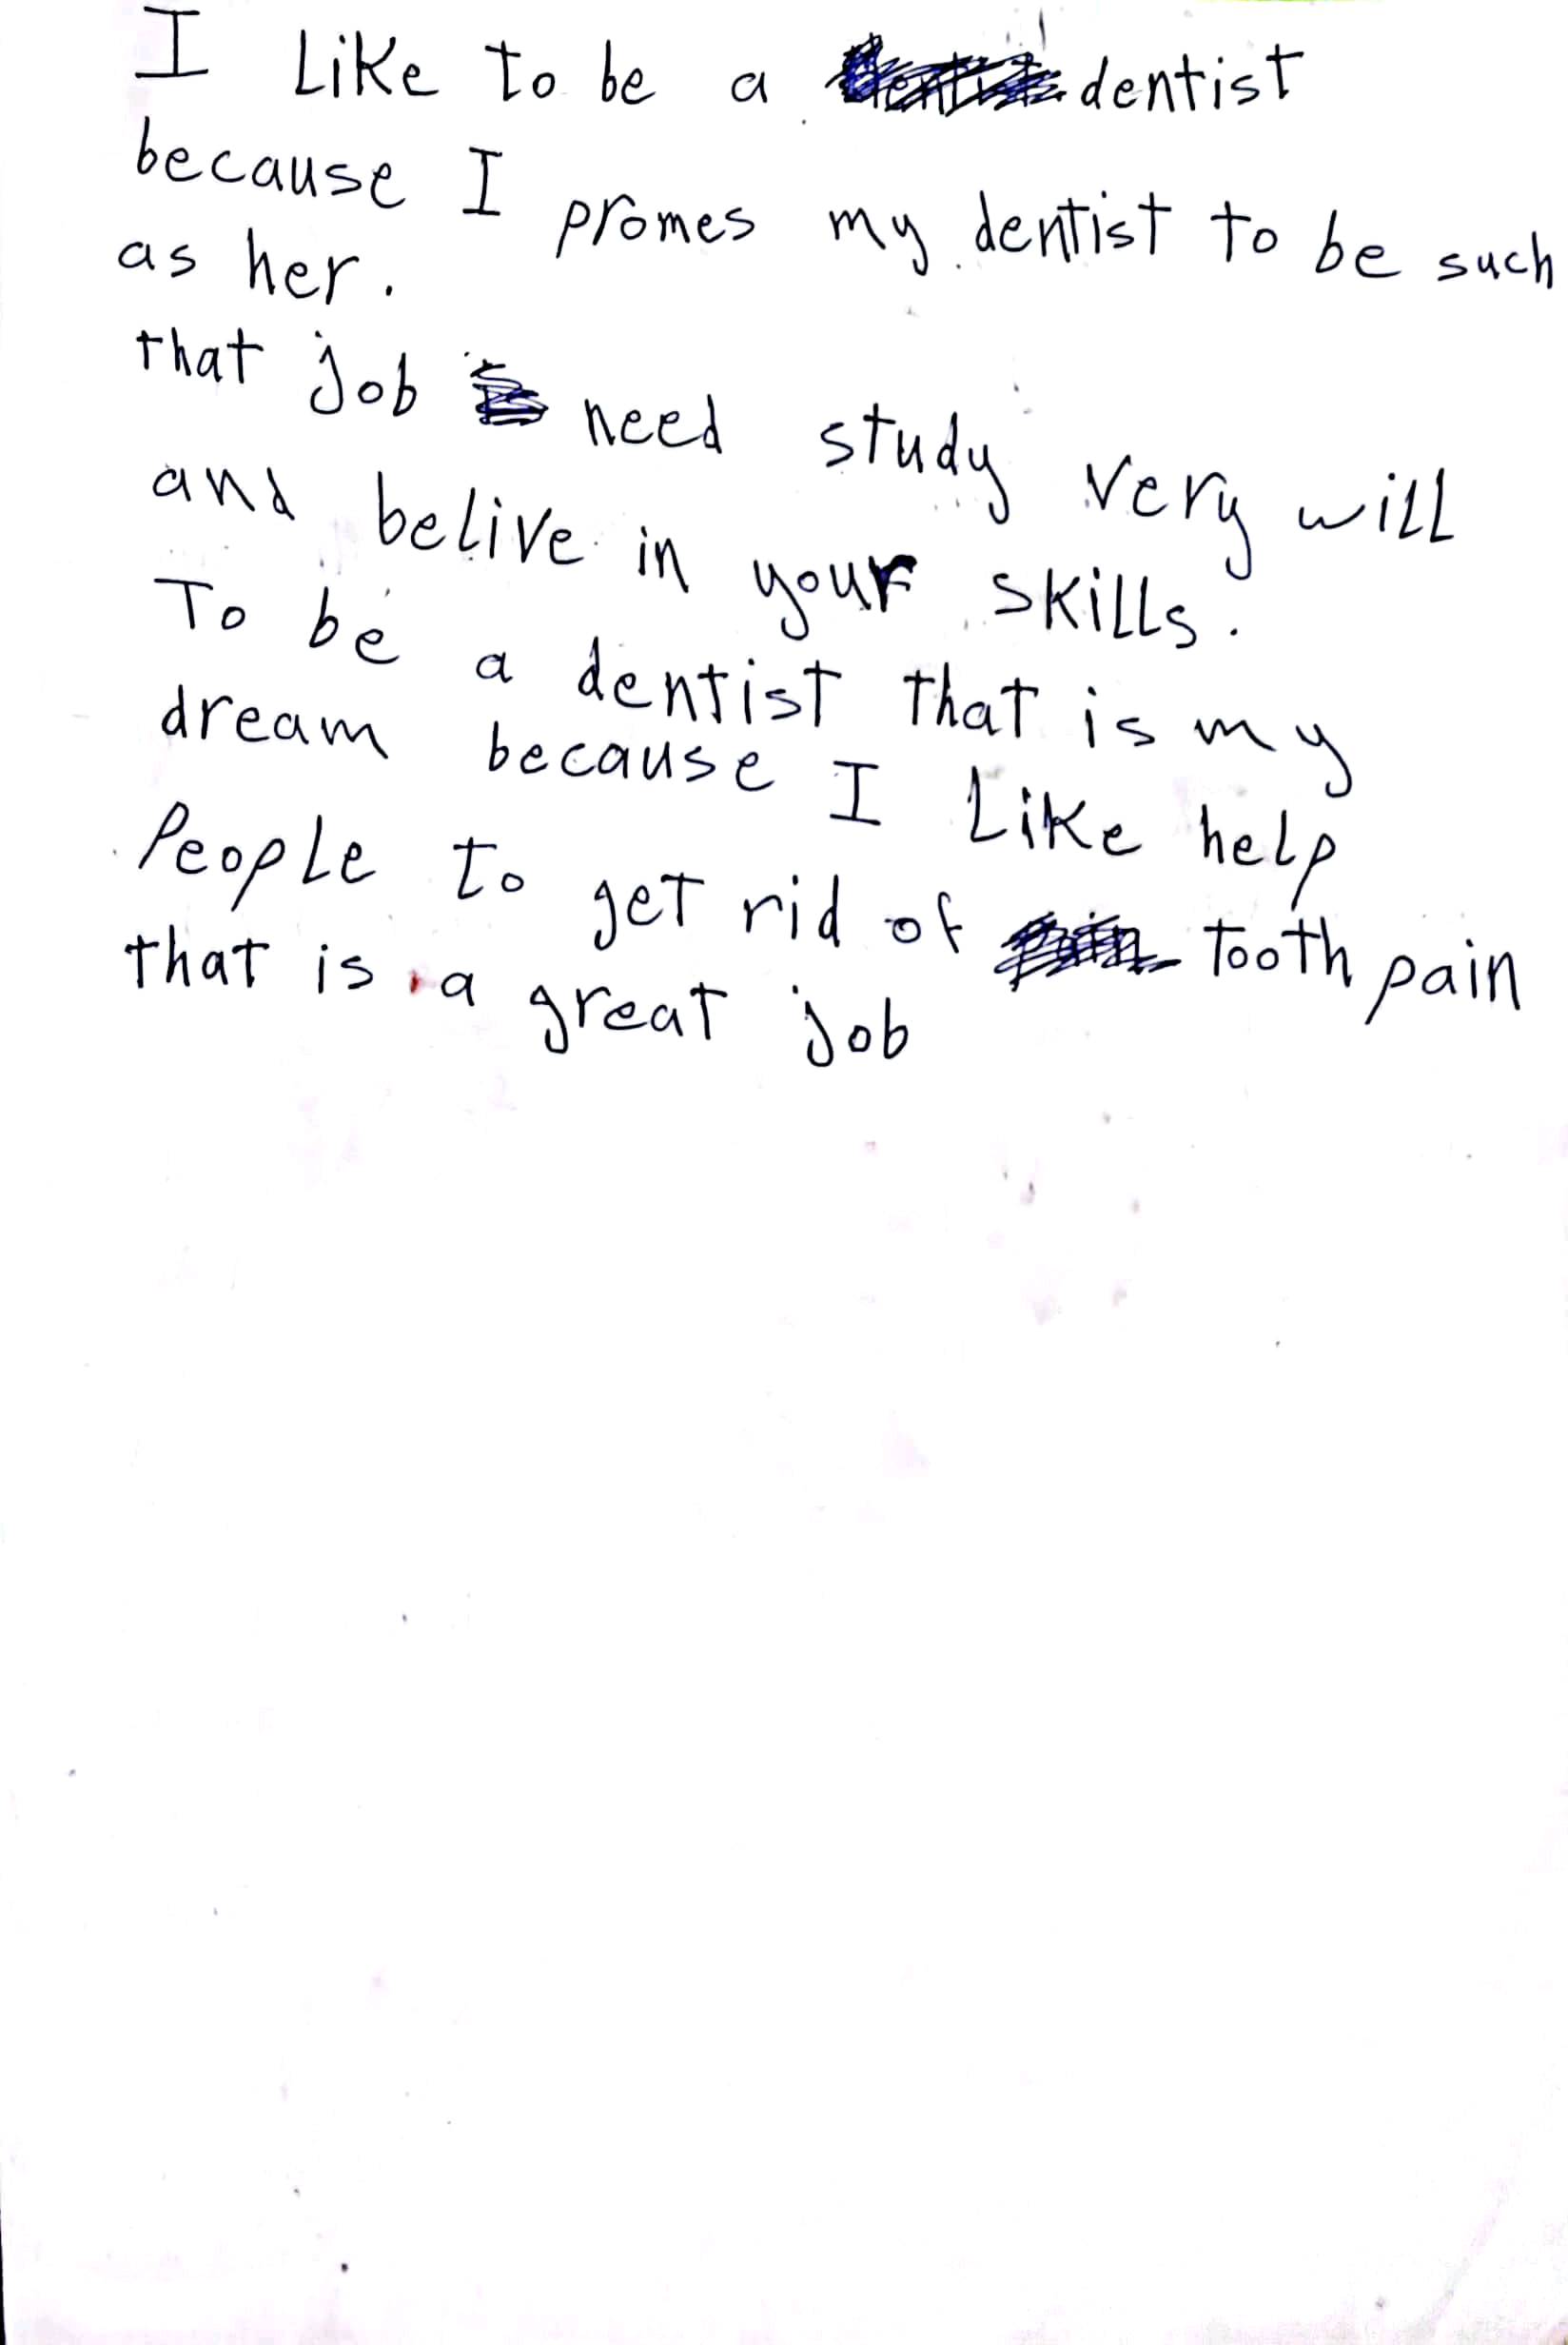 I Like to be a dentist
because I promes my dentist to be such
as her.
that job need study very will
and belive in your skills.
To be a dentist that is my
dream because I Like help
People to get rid of tooth pain
that is a great job